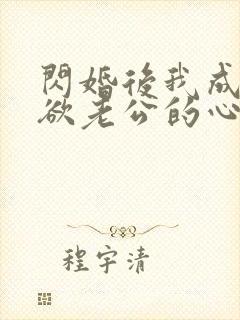 閃婚後我成
欲老公的心
程宇清